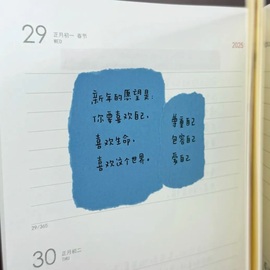 29 正月初一 春节
2025
新年的愿望是,
你要喜欢自己,
喜欢生命,
喜欢这个世界。
尊重自己
包容自己
爱自己
29/365
30 正月初二